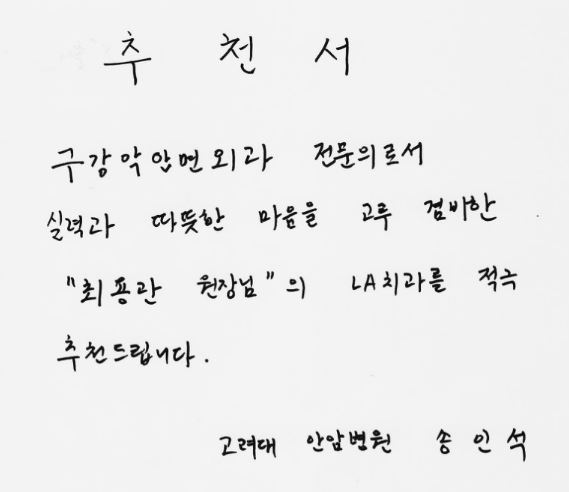 추 천 서
구강악안면외과 전문의로서
실력과 따뜻한 마음을 고루 겸비한
"최용관 원장님"의 LA치과를 적극
추천드립니다.
고려대 안암병원 송인석